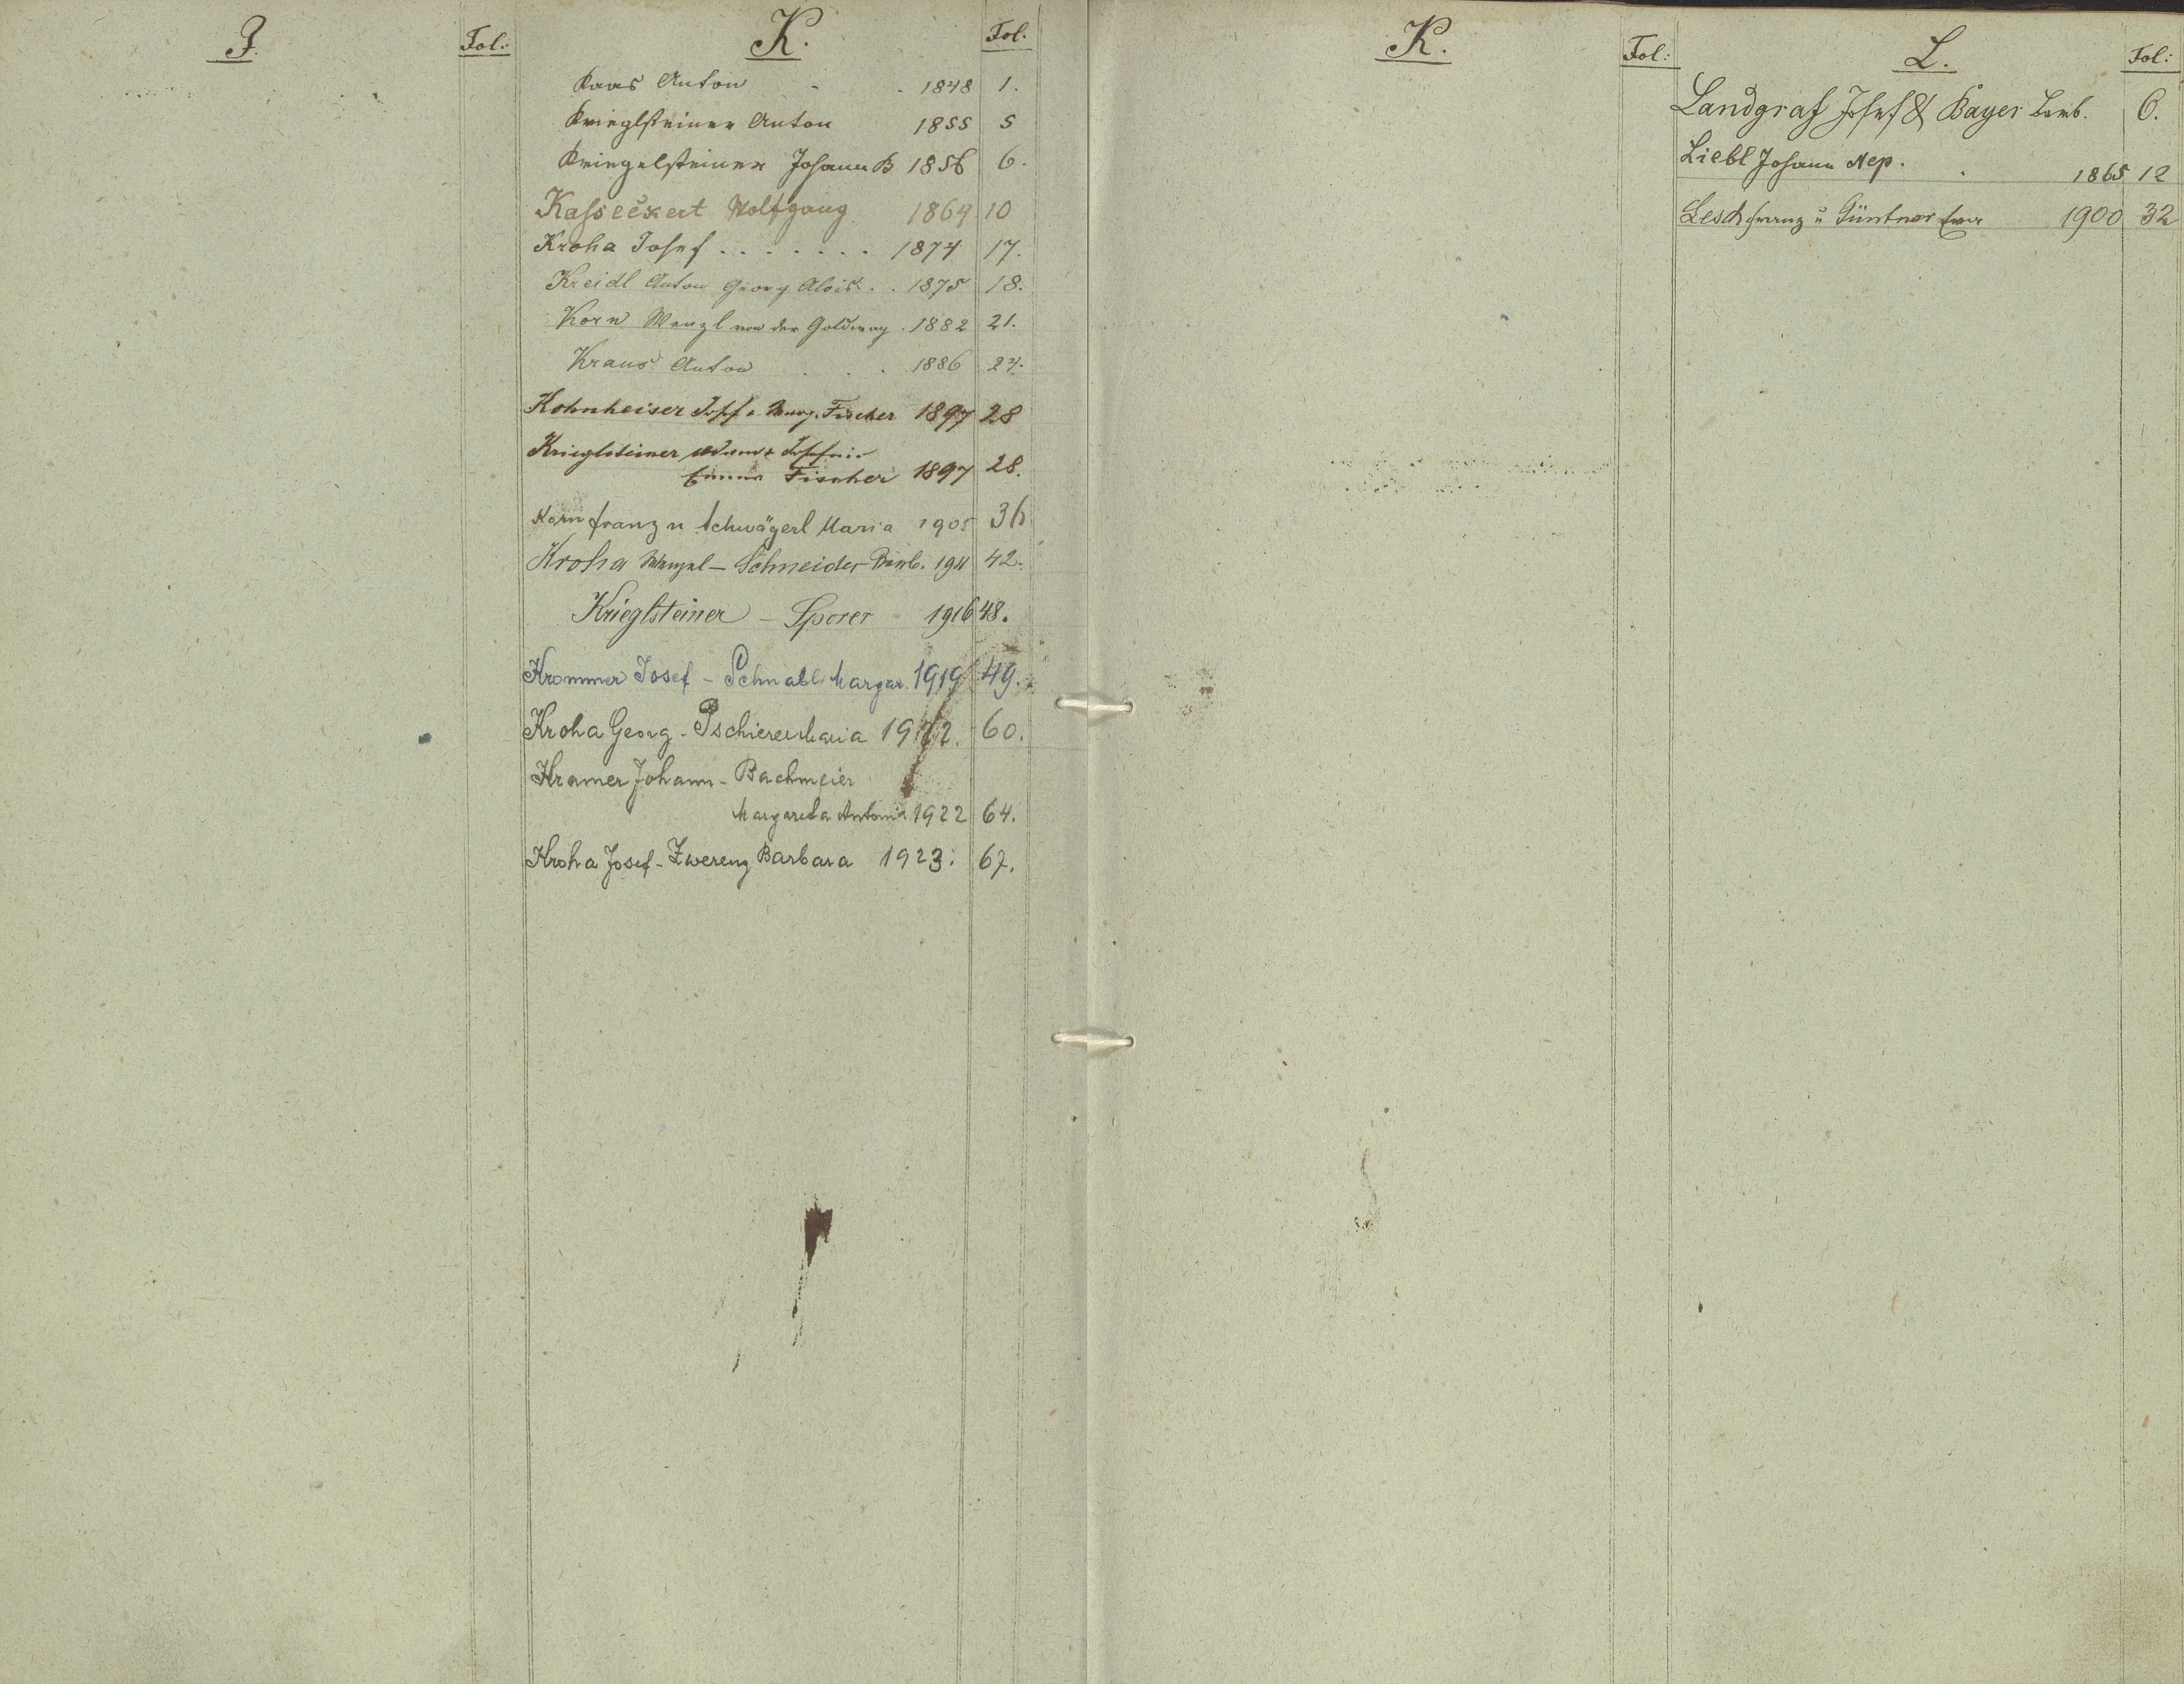 J.
Fol.:
K.
Fol.
Kaas Anton . . 1848 1.
Krieglsteiner Anton 1855 5
Kriegelsteiner Johann B 1856 6.
Kasseckert Wolfgang 1864 10
Kroha Josef . . . . . . . 1874 17.
Kreidl Anton Georg Alois . . 1875 18.
Korn Wenzl von der Goldweg . 1882 21.
Kraus Anton . . . 1886 24.
Kohnheiser Josef u. Marg. Fischer 1897 28
Krieglsteiner Adam & Josefine
Emma Fischer 1897 28.
Korn Franz u Schwägerl Maria 1905 36
Kroha Wenzel – Schneider Barb. 1911 42.
Krieglsteiner – Sporer 1916 48.
Krommer Josef – Schnabl Margar. 1919 49.
Kroha Georg - Tschierer Maria 1922. 60.
Kramer Johann – Bachmeier
Margareta Antonia 1922 64.
Kroha Josef – Zwerenz Barbara 1923. 67.
K.
Fol:
L.
Fol:
Landgraf Josef & Bayer Barb. 6.
Liebl Johann Nep. . 1865 12
Lesch Franz u Güntner Eva 1900 32